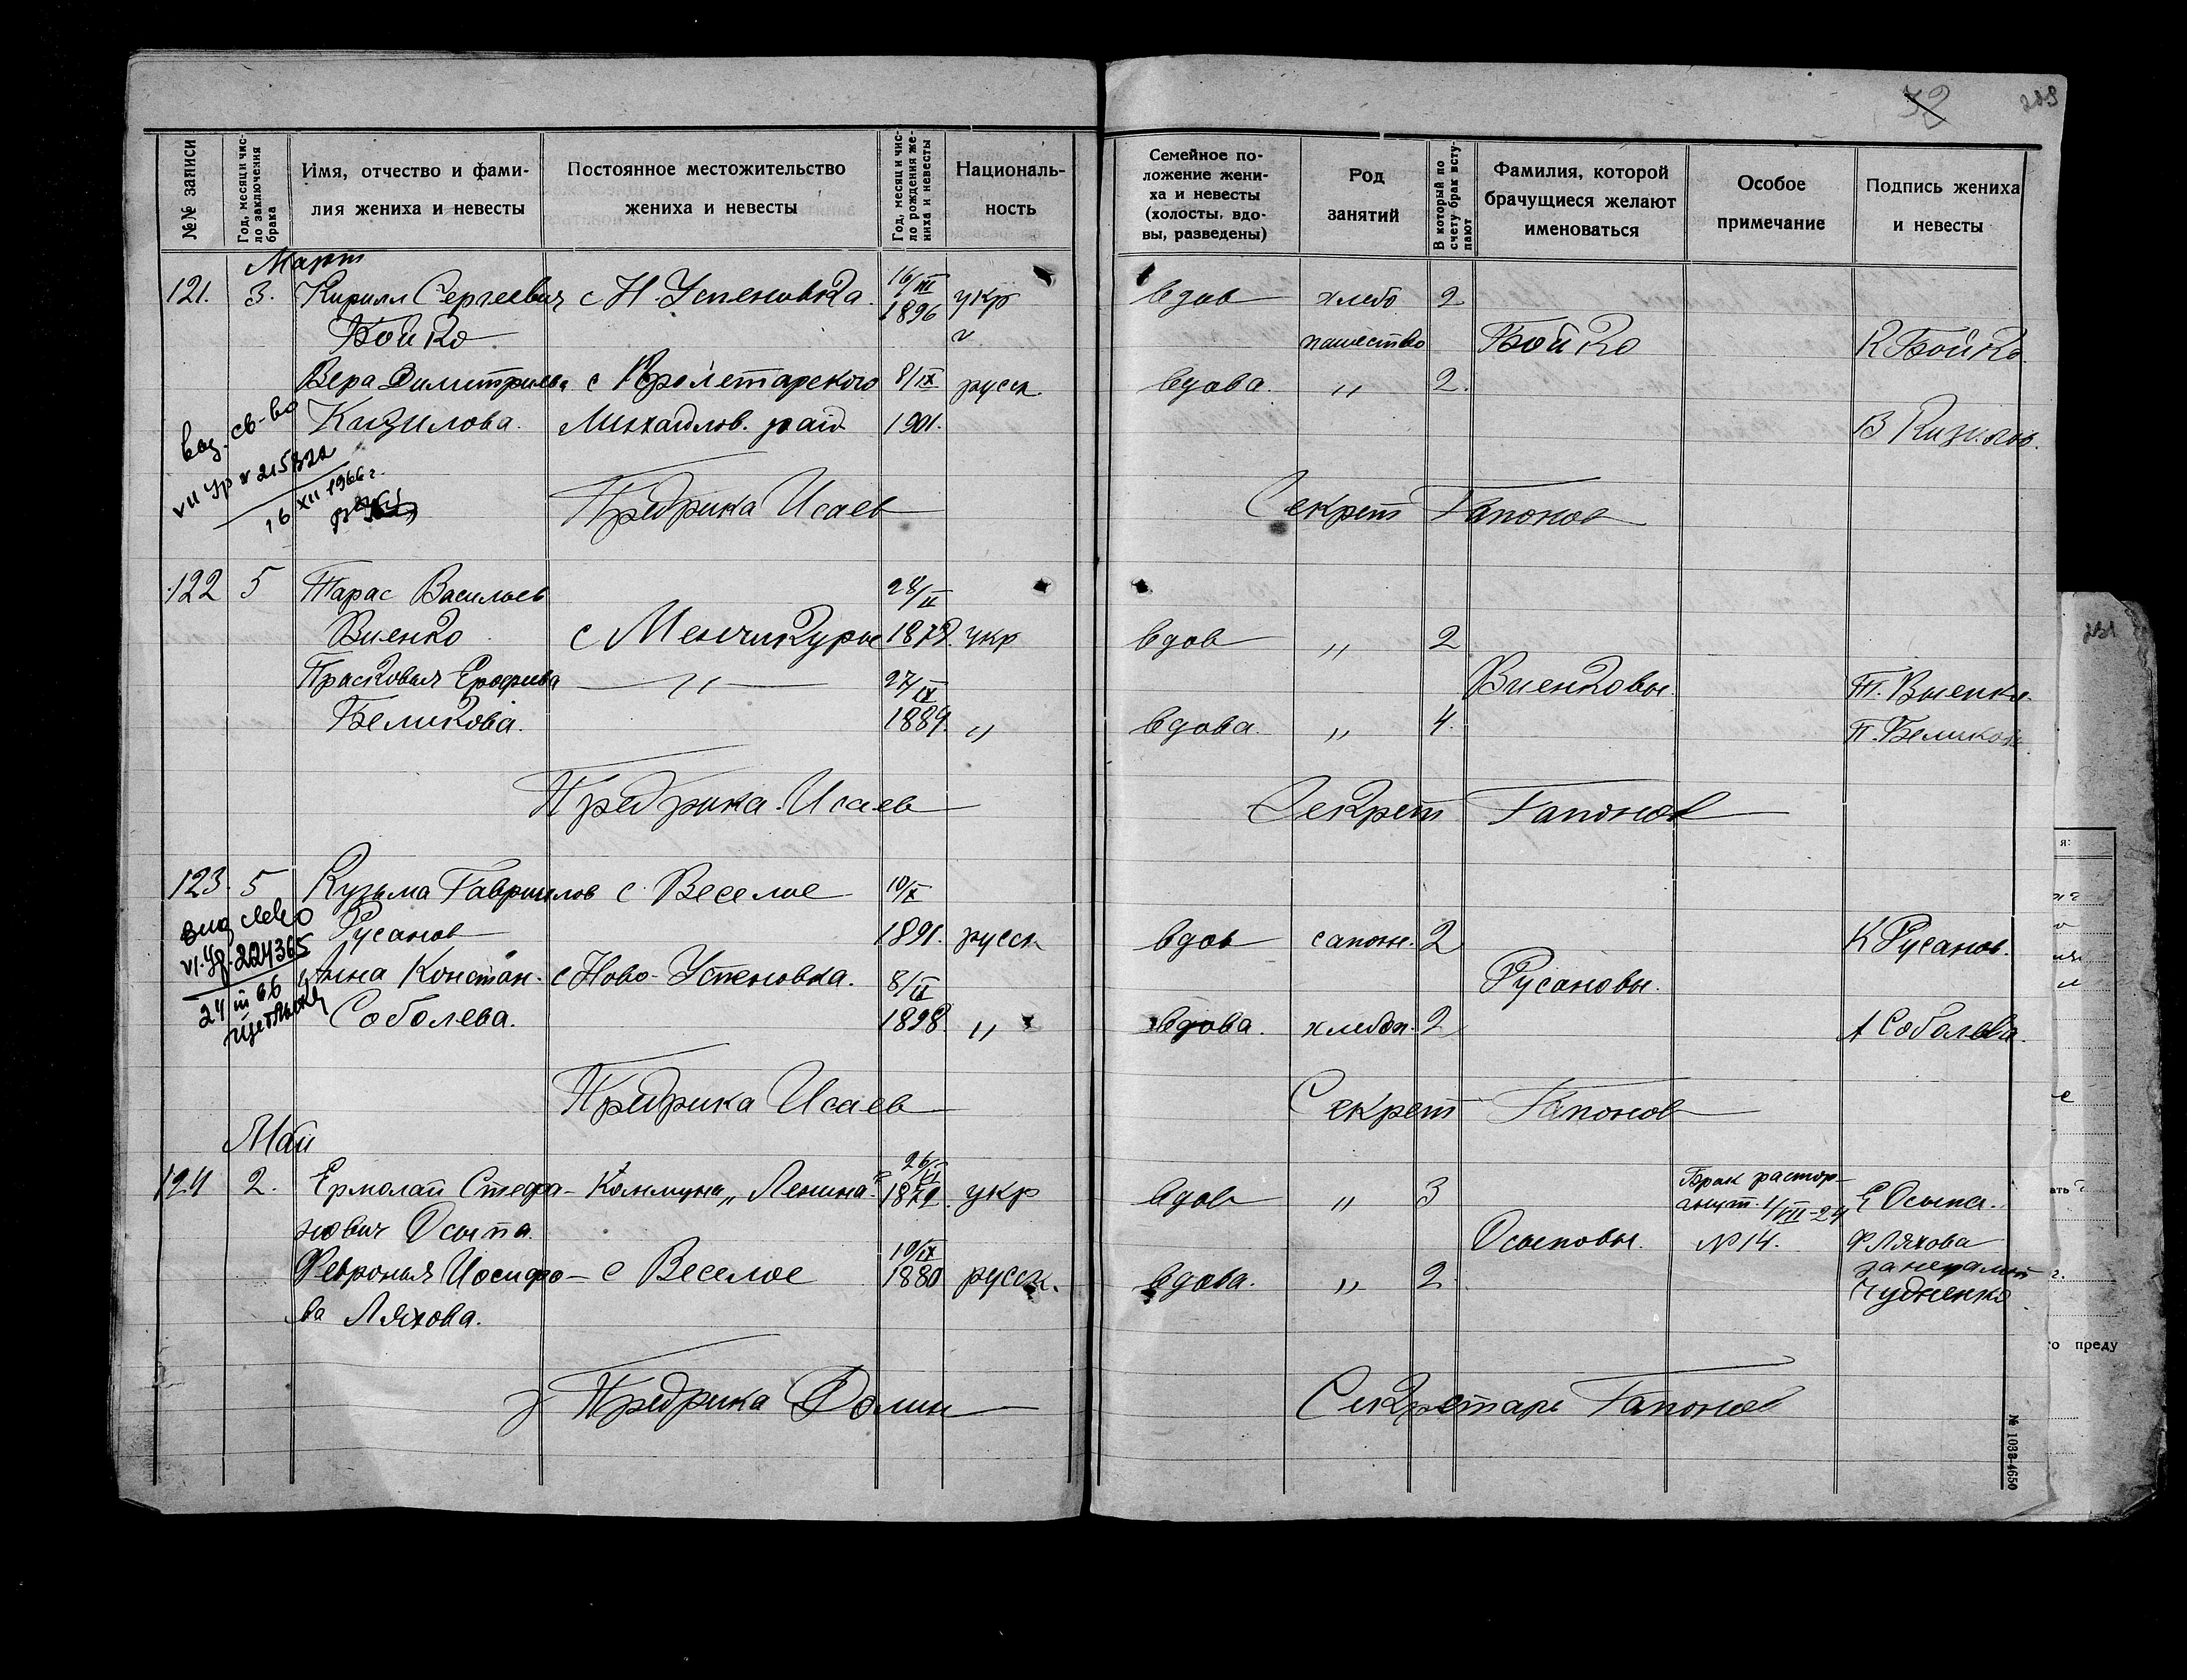 209
№№ записи
Год, месяц и чис-
ло заключения
брака
Имя, отчество и фами-
лия жениха и невесты
Постоянное местожительство
жениха и невесты
Год, месяц и чис-
ло рождения же-
ниха и невесты
Националь-
ность
Семейное по-
ложение жени-
ха и невесты
(холосты, вдо-
вы, разведены)
Род
занятий
В который по
счету брак всту-
пают
Фамилия, которой
брачущиеся желают
именоваться
Особое
примечание
Подпись жениха
и невесты
Март
121. 3. Кирилл Сергеевич с Н. Успеновка. 16/III укр вдов хлебо 2
Бойко 1896 пашество Бойко К Бойко
Вера Димитриева с Пролетарского 8/IX русск вдова. „ 2.
Кизилова. Михайлов. рай 1901. В Кизилов.
св-во
16 XII 1966 г.
Предрика Исаев Секрет Гапонов
122 5 Тарас Васильев 28/II
Виенко с Менчикуры 1879. укр вдов „ 2
Прасковья Ерофиева — „ — 27/IX Виенковы. Т. Виенко
Беликова. 1889. „ вдова. „ 4. П. Беликов
Предрика Исаев Секрет Гапонов
123. 5 Кузьма Гаврилов с. Веселое 10/X
Русанов 1891. русск вдов сапожн. 2 К Русанов.
224365
Анна Констан. с Ново-Успеновка. 8/II Русановы.
24 III 66
Соболева. 1898 „ вдова. хлебоп. 2 А Соболева.
Предрика Исаев Секрет Гапонов
Май
124 2. Ермолай Стефа- Коммуна „Ленина" 26/VI 1872. укр вдов „ 3 Брак растор- Е Осыпа.
нович Осыпа. Осыповы. гнут. 1/VII-24 №14. Ф Ляхова
Февронья Иосифо- с Веселое 10/IX 1880 русск. вдова. „ 2. за неграмот
ва Ляхова. Чудненко
з Предрика Секретарь Гапонов
№ 1033-4650
231
я:
о преду